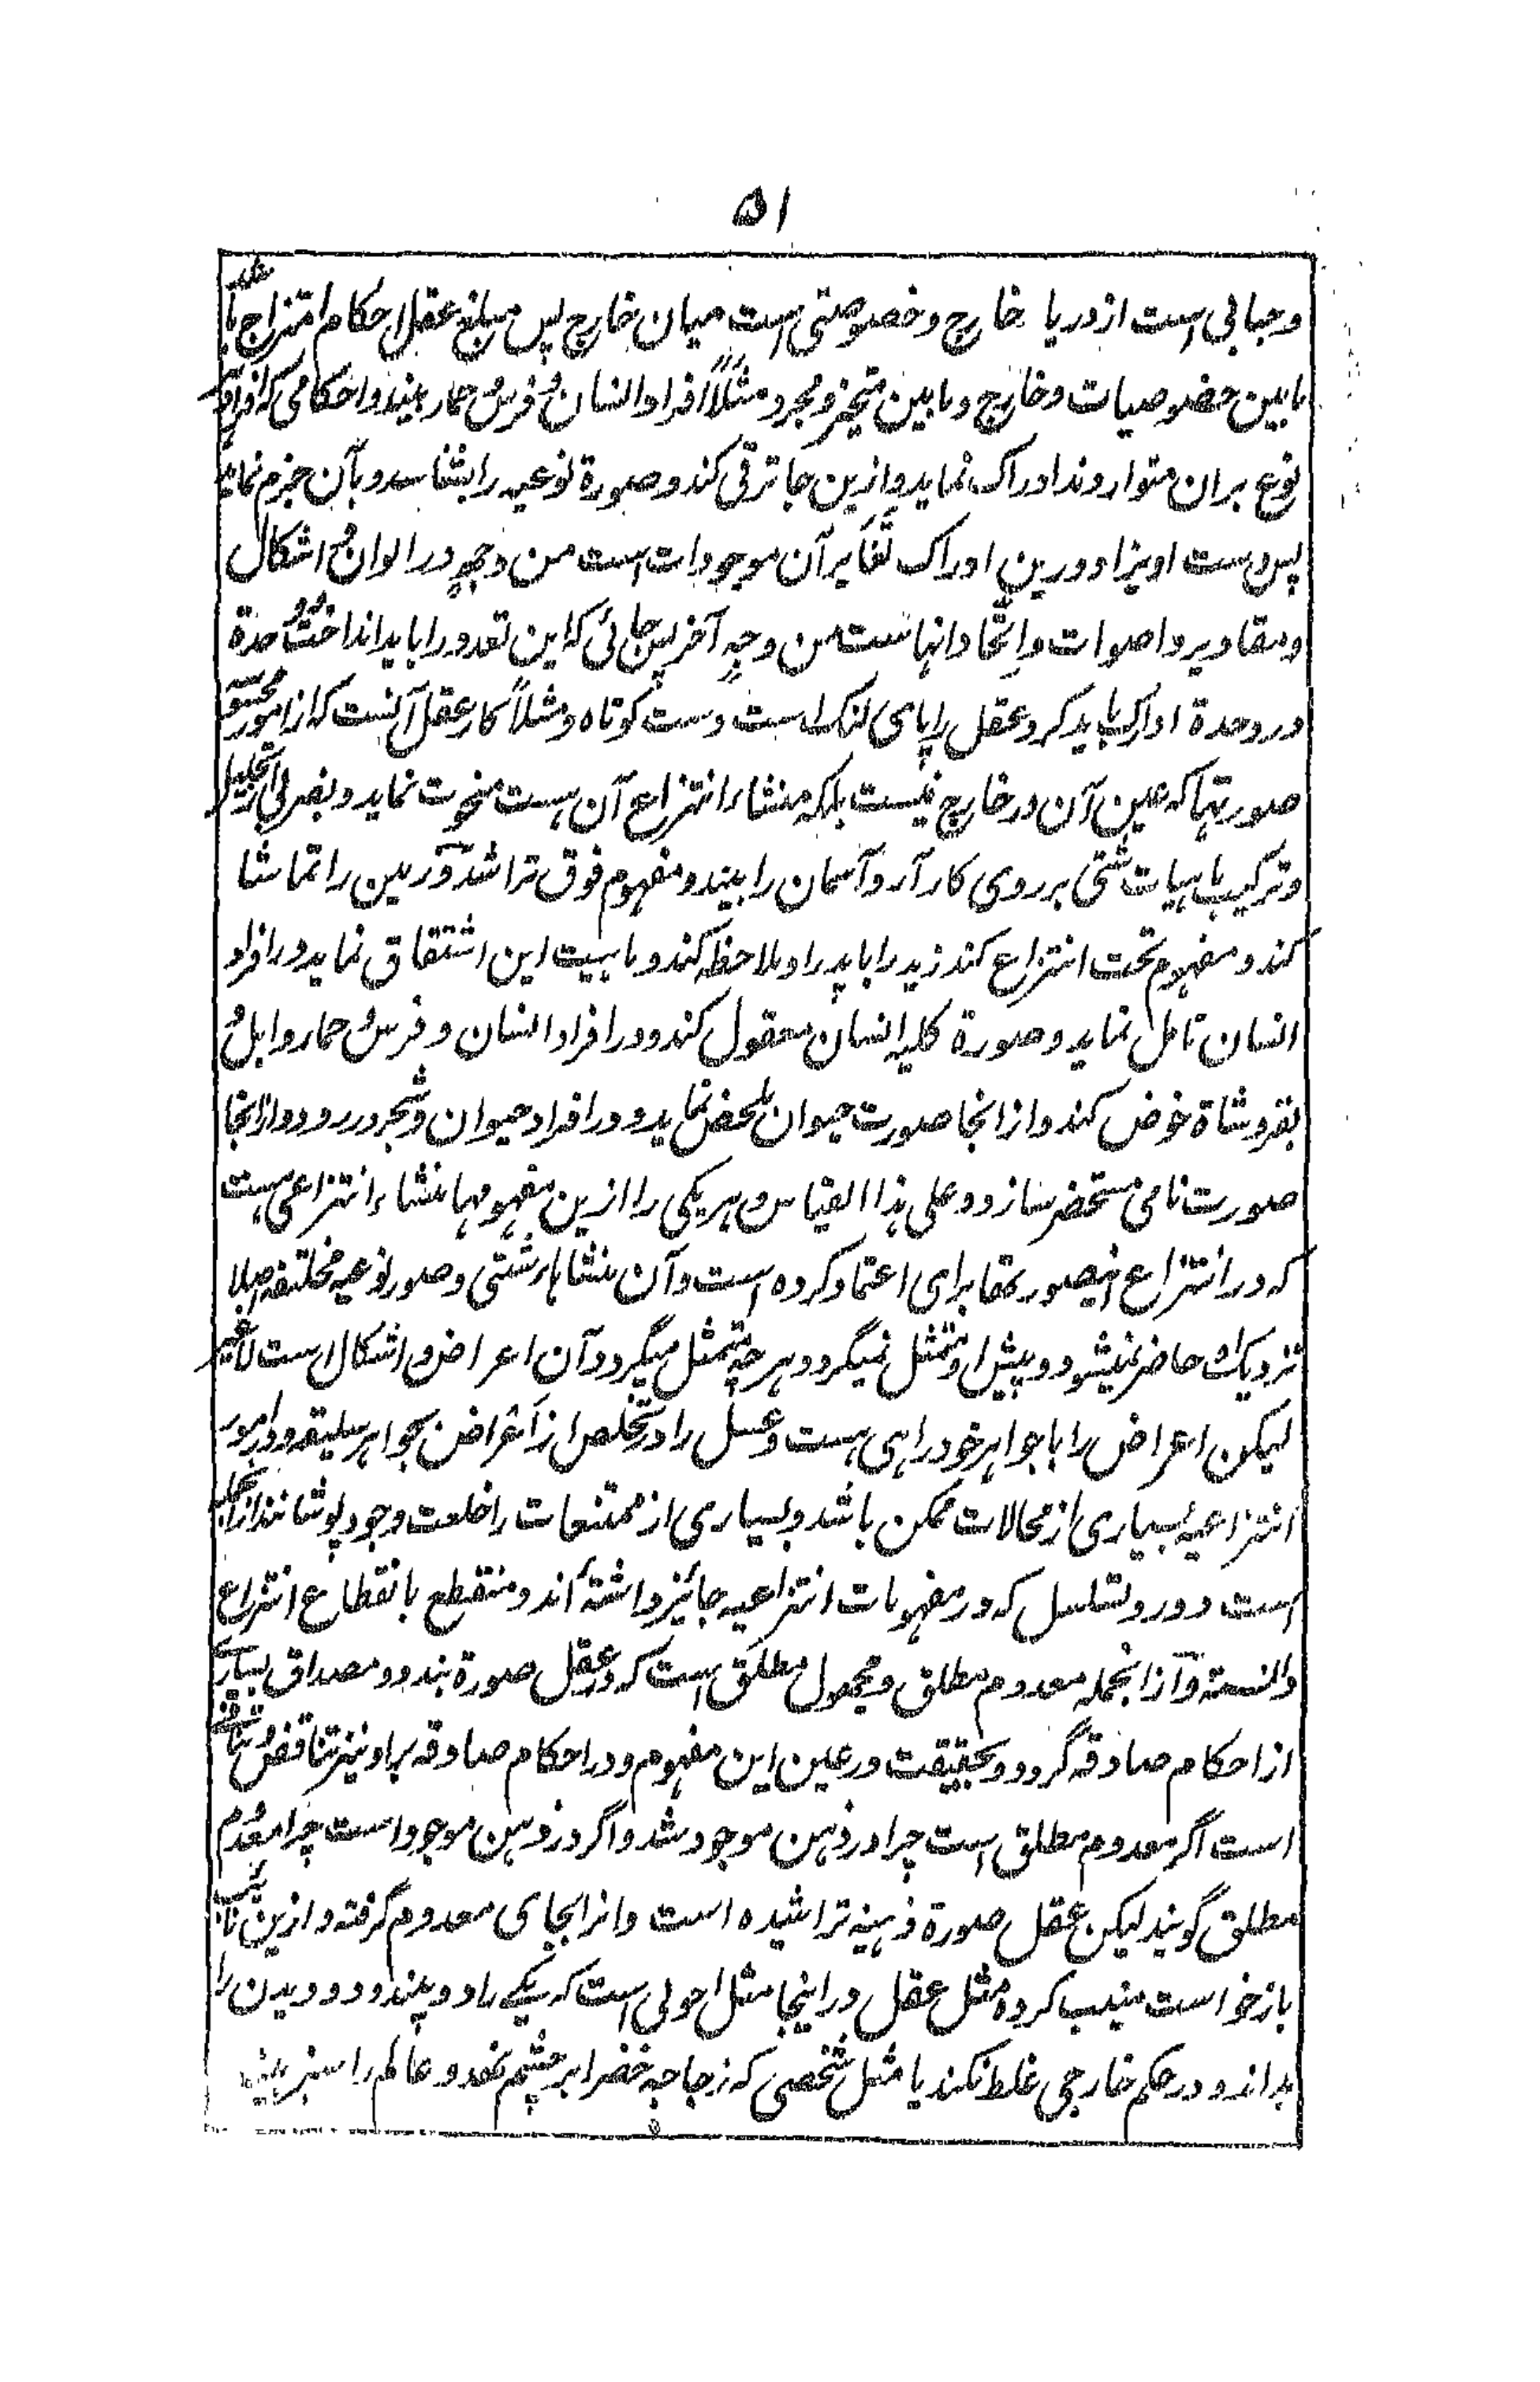 ۵۱
و حبابی است از دریا خارج و خصوصتی است میان خارج پس مبلغ عقل احکام امتزاج با
مابین خصوصیات و خارج و مابین متحیز و مجرد مثلاً افراد انسان و فرس و حمار بیند و احکامی که افراد
نوع بران متوارداند ادراک نماید و ازین جا ترقی کند و صورة نوعیه را بشناسد و بآن جزم نماید
پس دست اویز او درین ادراک تغایر آن موجودات است من وجهٍ در الوان و اشکال
و مقادیر و اصوات و اتحاد انهاست من وجهٍ آخر پس جائی که این تعدد را باید انداخت و وحدة
در وحدة ادراک باید کرد عقل را پای لنگ است و دست کوتاه و مثلاً کار عقل آنست که از امور
صورتها که عین آن در خارج نیست بلکه منشاء انتزاع آن هست منحوت نماید و بضربی از تحلیل
و ترکیب باهیات شتی بر روی کار آرد آسمان را بیند و مفهوم فوق تراشد و زمین را تماشا
کند و مفهوم تحت انتزاع کند زید را با پدر او ملاحظه کند و ماهیت ابن اشتقاق نماید در افراد
انسان تامل نماید و صورة کلیه انسان معقول کند و در افراد انسان و فرس و حمار و ابل و
بقر و شاة خوض کند و از انجا صورت حیوان ملخص نماید و در افراد حیوان و شجر در رود و از انجا
صورت نامی مستحضر سازد و علی هذا القیاس و هر یکی را ازین مفهومها منشاء انتزاعی هست
که در انتزاع اینصور بمقابرای اعتماد کرده است و آن منشاهاء شتی و صور نوعیه مختلفه اصلا
نزدیک او حاضر نمیشود و پیش او متمثل نمیگردد هر چه متمثل میگردد آن اعراض و اشکال است لاغیر
لیکن اعراض را با جواهر خود راهی هست و عقل را در تخلص از اعراض بجواهر سلیقه و در امور
انتزاعیه بسیاری از محالات ممکن باشد و بسیاری از ممتنعات را خلعت وجود پوشانند ازانجمله
است دور و تسلسل که در مفهومات انتزاعیه جائیز داشته اند و منقطع بانقطاع انتزاع
دانسته و ازانجمله معدوم مطلق و مجهول مطلق است که در عقل صورة بندد و مصداق بسیاری
از احکام صادقه گردد و بحقیقت در عین این مفهوم و در احکام صادقه بر او نیز تناقض و
است اگر معدوم مطلق است چرا در ذهن موجود شد و اگر در ذهن موجود است چرا معدوم
مطلق گویند لیکن عقل صورة ذهنیه تراشیده است و انرا بجای معدوم گرفته و ازین
باز خواست کرده مثل عقل در اینجا مثل احولی است که یکے را دو بیند و دو دیدن را
بداند و در حکم خارجی غلط نکند یا مثل شخصی که زجاجه خضرا بر چشم نهد و عالم را سبز بیند